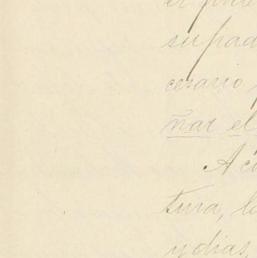 supad
cesario
ñar el
A c
tura, l
y dias,